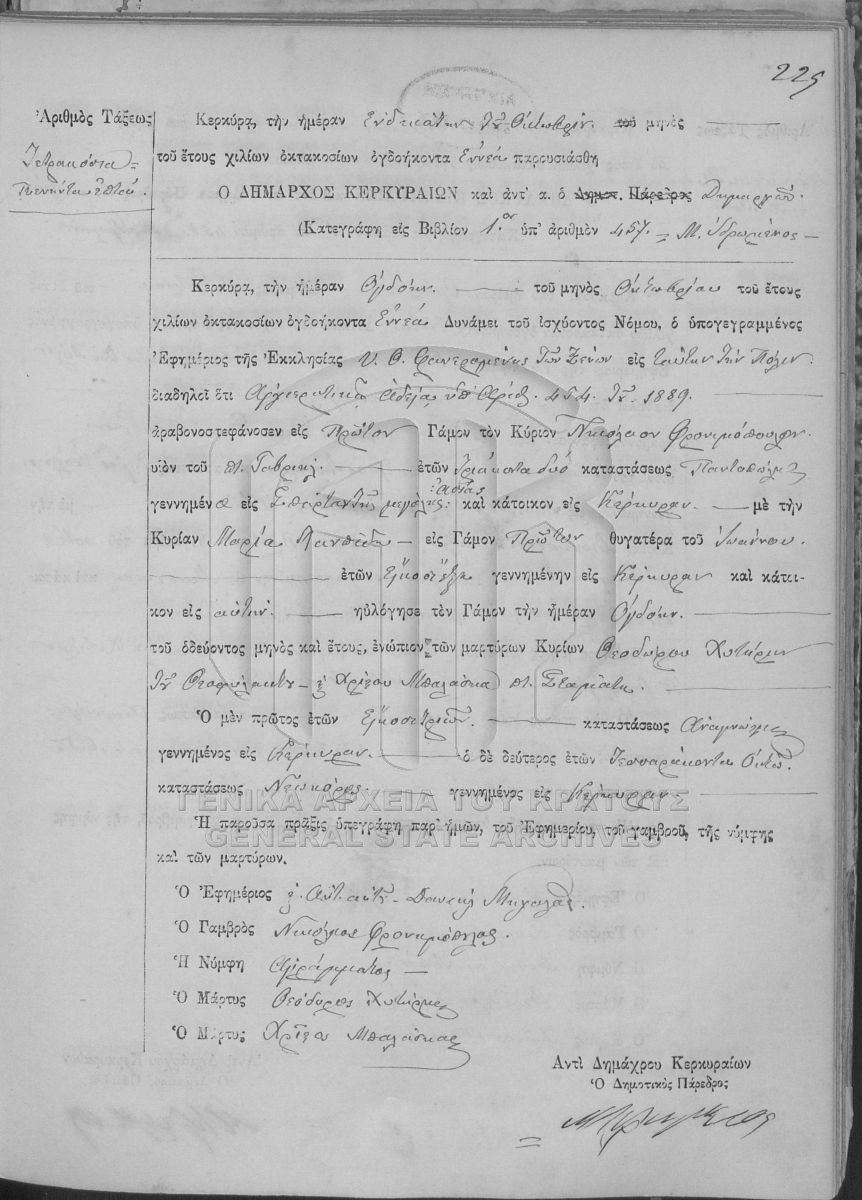 225
Ἀριθμὸς Τάξεως
Τετρακόσια
πενῆντα ἑπτά.
Κερκύρᾳ, τὴν ἡμέραν Ἑνδεκάτην τοῦ Ὀκτωβρίου τοῦ μηνὸς
τοῦ ἔτους χιλίων ὀκτακοσίων ὀγδοήκοντα Ἐννέα παρουσιάσθη
Ὁ ΔΗΜΑΡΧΟΣ ΚΕΡΚΥΡΑΙΩΝ καὶ ἀντ' α. ὁ Δημοτ. Πάρεδρος
(Κατεγράφη εἰς Βιβλίον 1.ον ὑπ' ἀριθμὸν 457.
Κερκύρᾳ, τὴν ἡμέραν Ὀγδόην. τοῦ μηνὸς Ὀκτωβρίου τοῦ ἔτους
χιλίων ὀκτακοσίων ὀγδοήκοντα Ἐννέα Δυνάμει τοῦ ἰσχύοντος Νόμου, ὁ ὑπογεγραμμένος
Ἐφημέριος τῆς Ἐκκλησίας Υ. Θ. Φανερωμένης τῶν Ξένων εἰς ταύτην τὴν Πόλιν
διαδηλοῖ ὅτι Ἀρχιερατικῇ ἀδείᾳ ὑπ' Ἀριθ. 454. τοῦ 1889.
ἀραβονοστεφάνοσεν εἰς Πρῶτον Γάμον τὸν Κύριον Νικόλαον Φρονιμόπουλον
υἱὸν τοῦ π. Γαβριὴλ ἐτῶν τριάκοντα δύο καταστάσεως Παντοπώλης
γεννημένο εἰς Σπάρταν τῆς μικρᾶς Ἀσίας καὶ κάτοικον εἰς Κέρκυραν. μὲ τὴν
Κυρίαν Μαρία εἰς Γάμον Πρῶτον θυγατέρα τοῦ Ἰωάννου.
ἐτῶν γεννημένην εἰς Κέρκυραν καὶ κάτοι-
κον εἰς αὐτήν. ηὐλόγησε τὸν Γάμον τὴν ἡμέραν Ὀγδόην.
τοῦ ὁδεύοντος μηνὸς καὶ ἔτους, ἐνώπιον τῶν μαρτύρων Κυρίων Θεοδώρου Χυτήρη
τοῦ Θεοφυλάκτου Χρίστου Μπαλάσκα π. Σταμάτη.
Ὁ μὲν πρῶτος ἐτῶν καταστάσεως
γεννημένος εἰς Κέρκυραν. ὁ δὲ δεύτερος ἐτῶν Τεσσαράκοντα Ὀκτώ.
καταστάσεως Νεωκόρος. γεννημένος εἰς Κέρκυραν.
Ἡ παροῦσα πρᾶξις ὑπεγράφη παρ' ἡμῶν, τοῦ Ἐφημερίου, τοῦ γαμβροῦ, τῆς νύμφης
καὶ τῶν μαρτύρων.
Ὁ Ἐφημέριος Δανιὴλ Μιχαλᾶς.
Ὁ Γαμβρὸς Νικόλαος Φρονιμόπουλος.
Ἡ Νύμφη Ἀγράμματος
Ὁ Μάρτυς Θεόδωρος Χυτήρης
Ὁ Μάρτυς Χρῖστου Μπαλάσκας
Ἀντὶ Δημάχρου Κερκυραίων
Ὁ Δημοτικὸς Πάρεδρος
ΓΕΝΙΚΑ ΑΡΧΕΙΑ ΤΟΥ ΚΡΑΤΟΥΣ
GENERAL STATE ARCHIVES